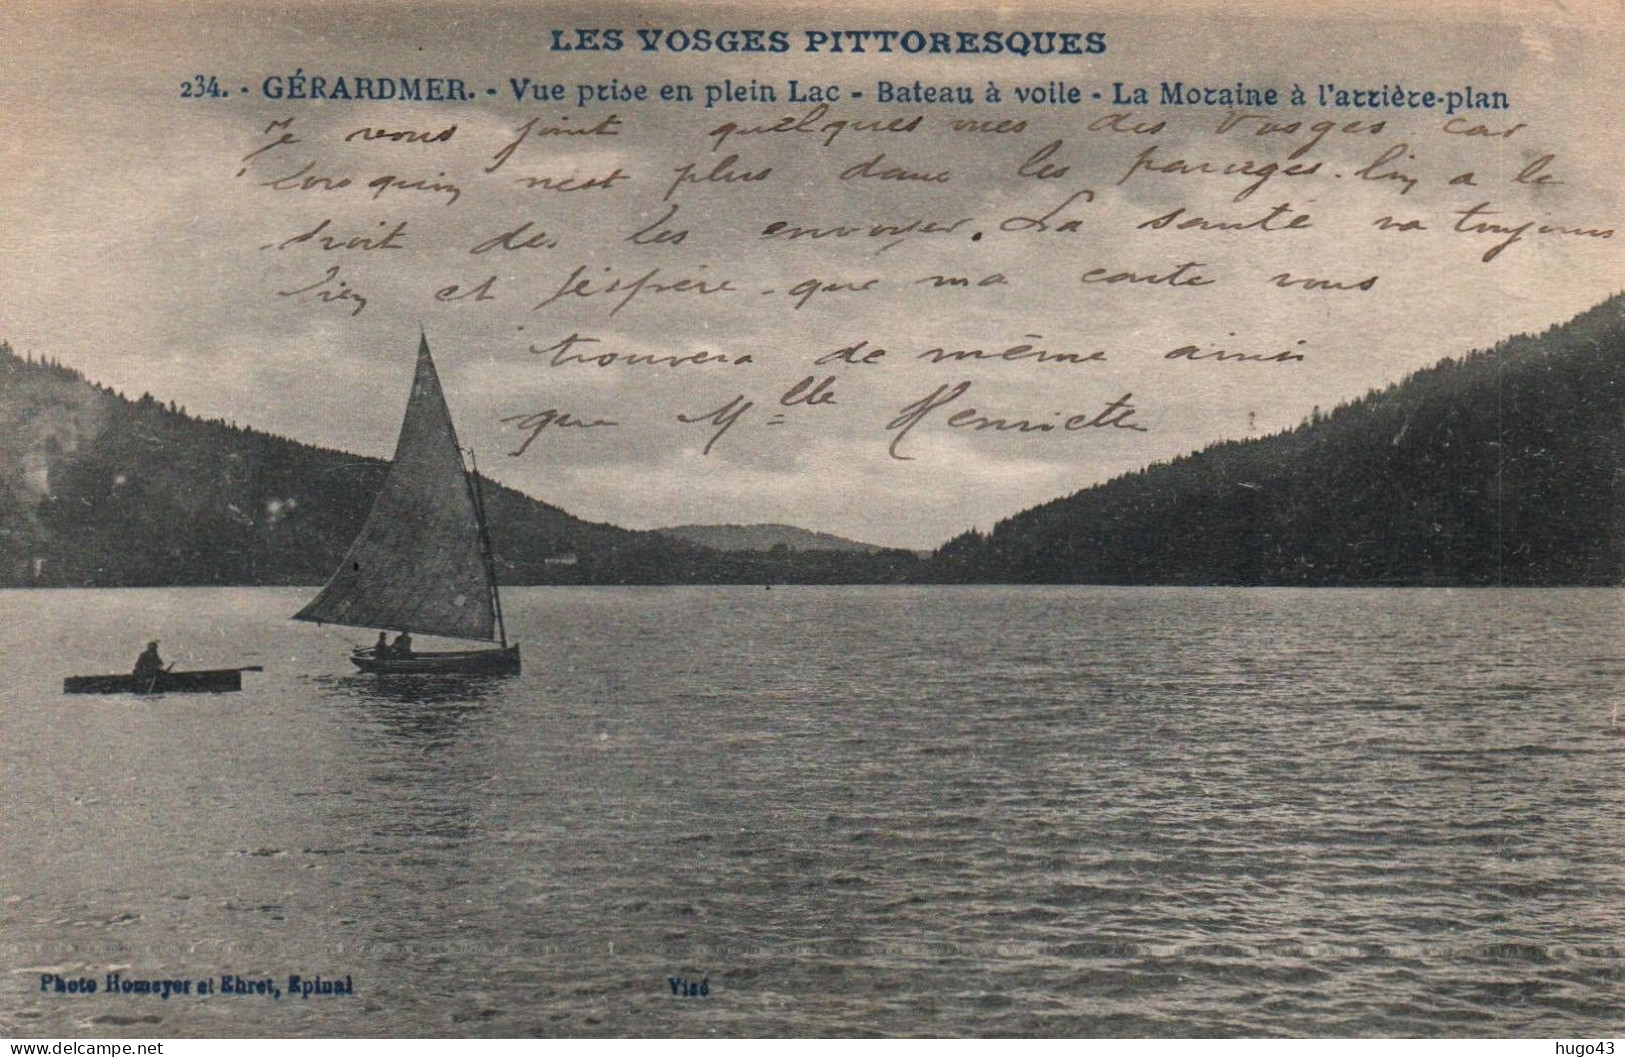 LES VOSGES PITTORESQUES
234. - GÉRARDMER. - Vue prise en plein Lac - Bateau à voile - La Moraine à l'arrière-plan
Je vous joint quelques vues des Vosges car
lorsqu'on n'est plus dans les parages. l'on a le
droit de les envoyer. La santé va toujours
bien et j'espère que ma carte vous
trouvera de même ainsi
que Mlle Henriette
Photo Homeyer et Ehret, Epinal
Visé
delcampe.net
hugo43